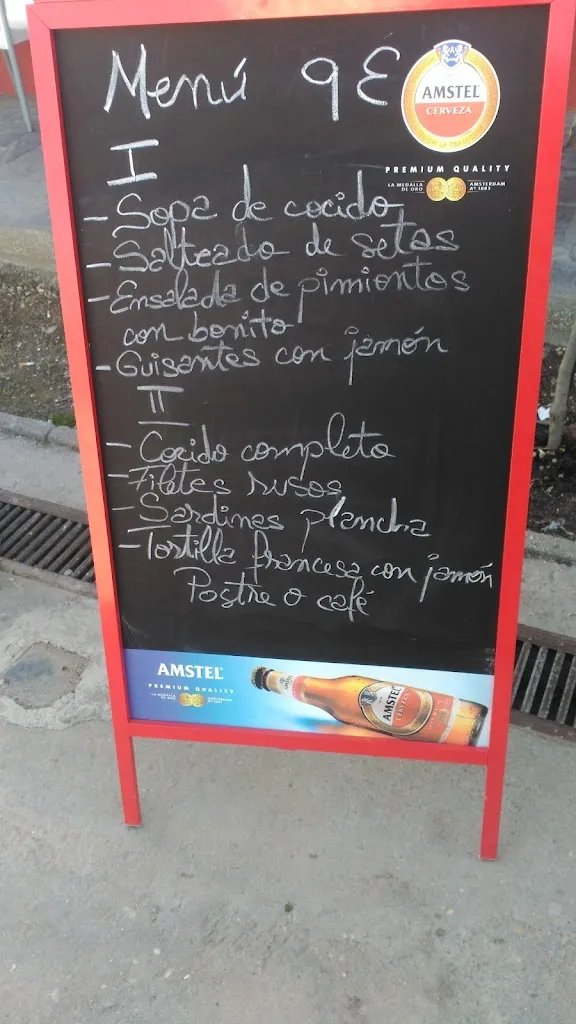 Menú 9E
AMSTEL
CERVEZA
PREMIUM QUALITY
LA MEDALLA DE ORO
AMSTERDAM Aº 1883
I
- Sopa de cocido
- Salteado de setas
- Ensalada de pimientos
con bonito
- Guisantes con jamón
II
- Cocido completo
- Filetes rusos
- Sardines plancha
- Tortilla francesa con jamón
Postre o café
AMSTEL
PREMIUM QUALITY
AMSTEL
CERVEZA